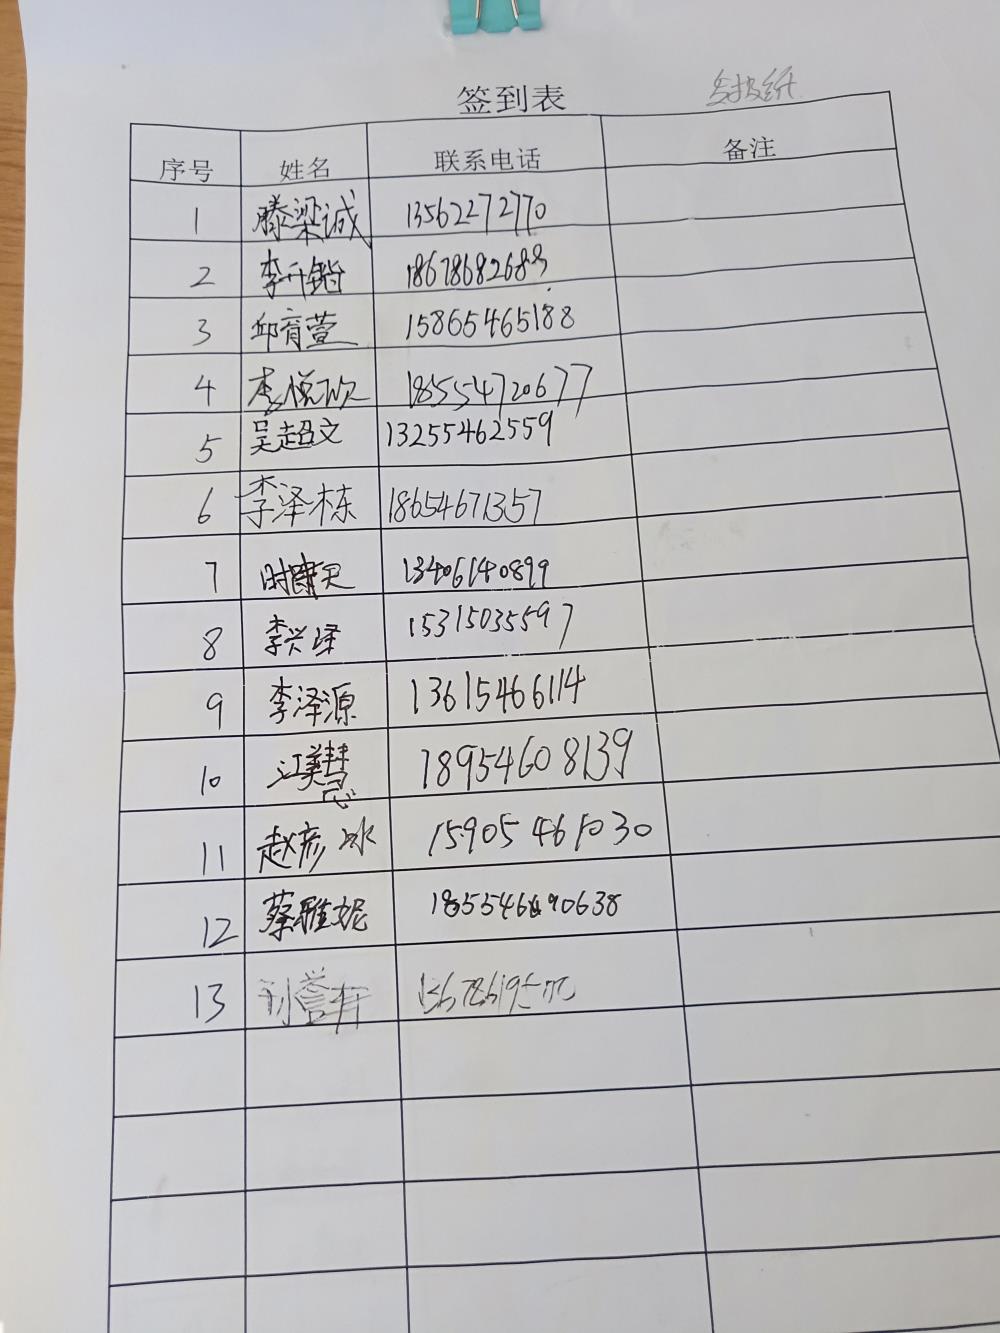 签到表
序号 姓名 联系电话 备注
1 滕梁诚 13562272770
2 李升锴
3 邱育萱 15865465188
4 李悦欣 18554720677
5 吴超文 13255462559
6 李泽栋 18654671357
7 13406140899
8 李兴泽 15315035597
9 李泽源 13615466114
10 江美慧 18954608139
11 赵彦冰 15905461030
12 蔡雅妮
13